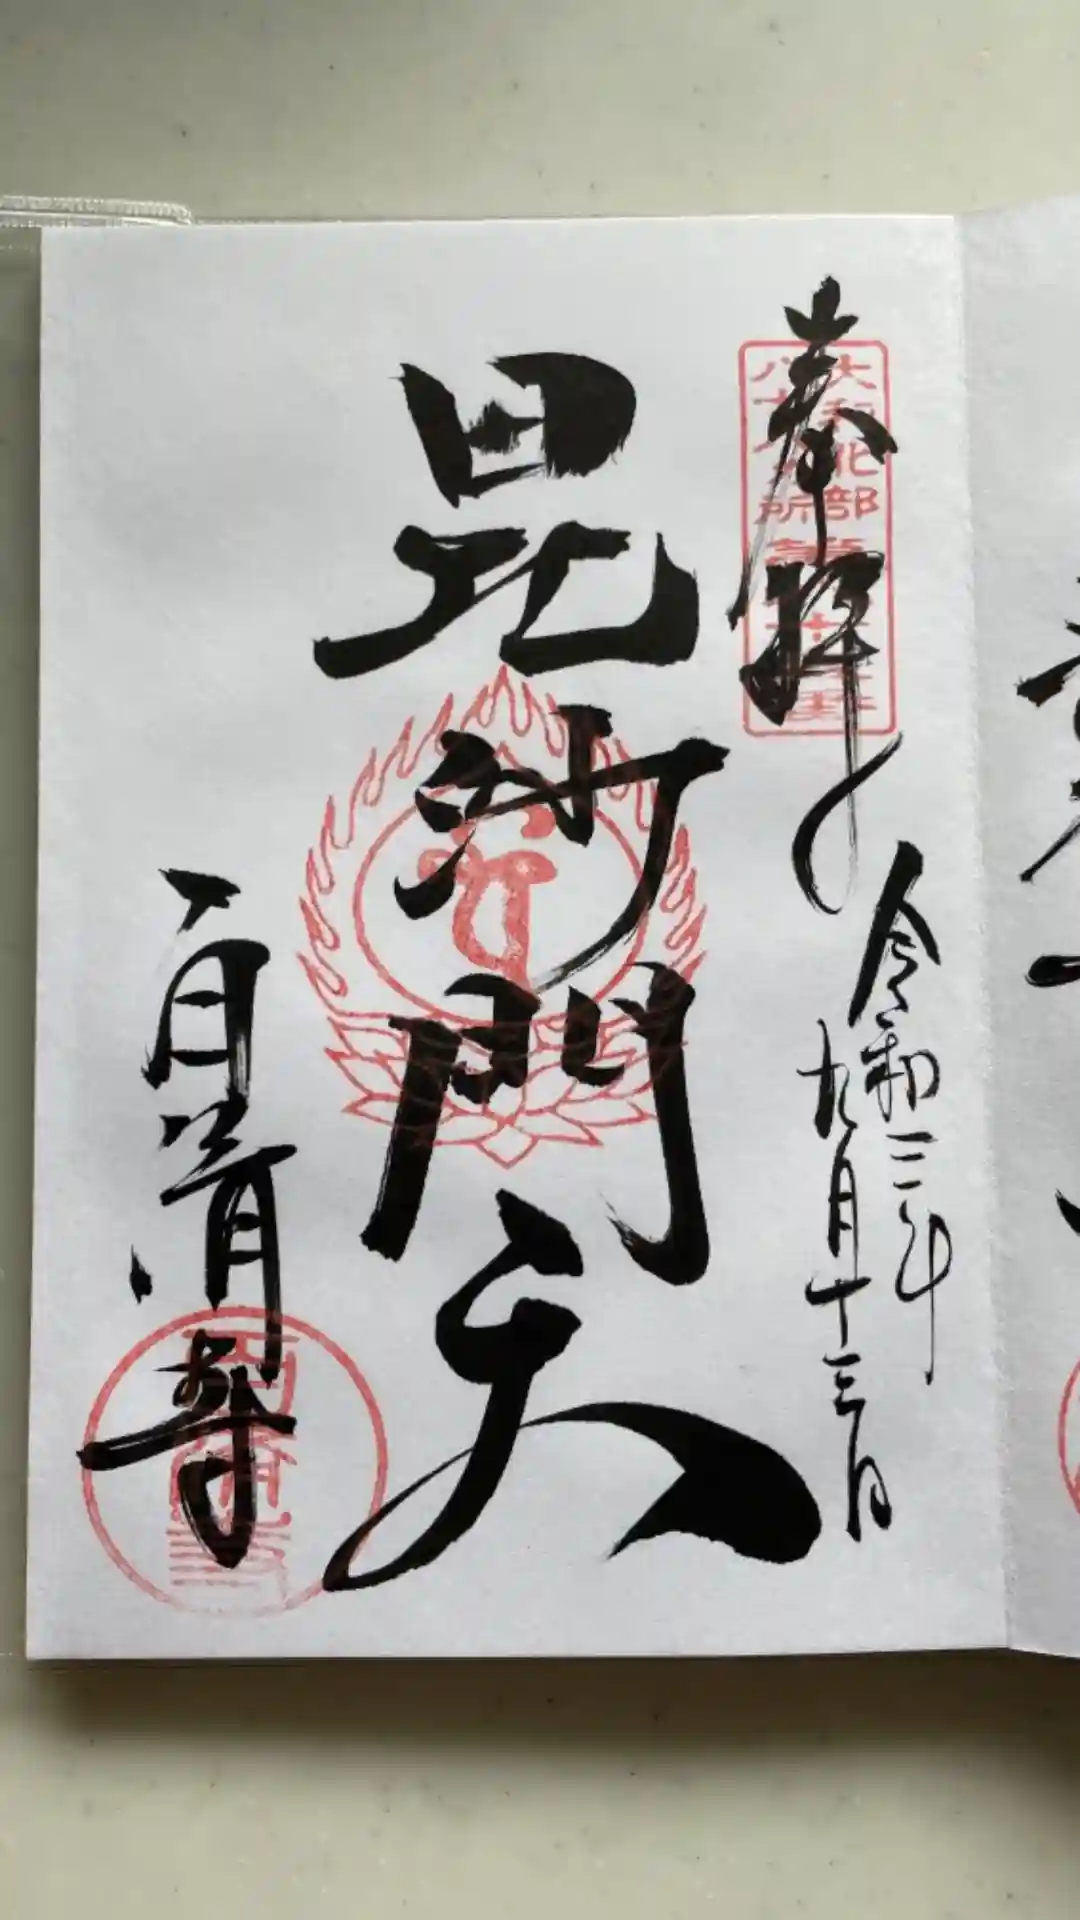 奉拝
大和北部
八十八ヶ所
令和三年
九月十三日
毘沙門天
百済寺